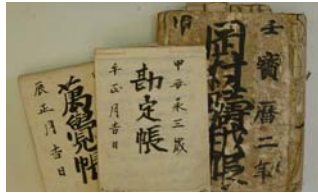 壬寶暦二年
岡村
甲安永三歳
勘定帳
午正月吉日
萬覚帳
辰正月吉日